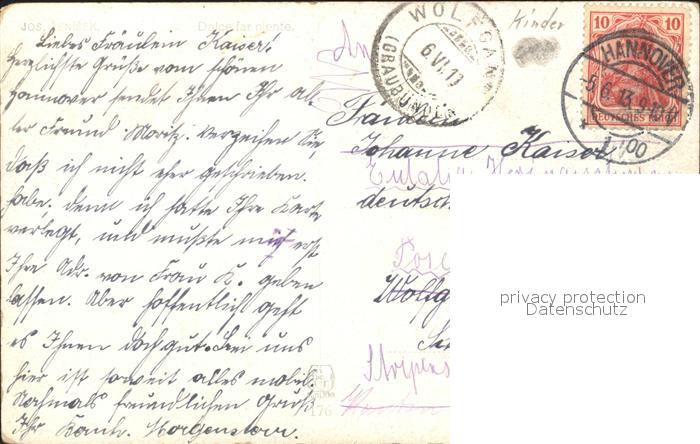 JOS. ZENIŠEK. Dolce far niente.
Liebes Fräulein Kaiser.
Herzlichste Grüße vom schönen
Hannover sendet Ihnen Ihr al-
ter Freund Moritz. Verzeihen Sie,
daß ich nicht eher geschrieben
habe. denn ich hatte Ihre Karte
verlegt, und mußte mir erst
Ihre Adr. von Frau K. geben
lassen. Aber hoffentlich geht
es Ihnen doch gut. Bei uns
hier ist soweit alles mobil.
Nochmals freundlichen Gruß
Ihr Morgenstern.
176
Kinder
WOLFGANG
6.VI.13
(GRAUBÜNDEN)
10 10
DEUTSCHES REICH
HANNOVER
5.6.13.9-10
1 *00
Fräulein
Johanne Kaiser
deutsch
Wolfg
privacy protection
Datenschutz